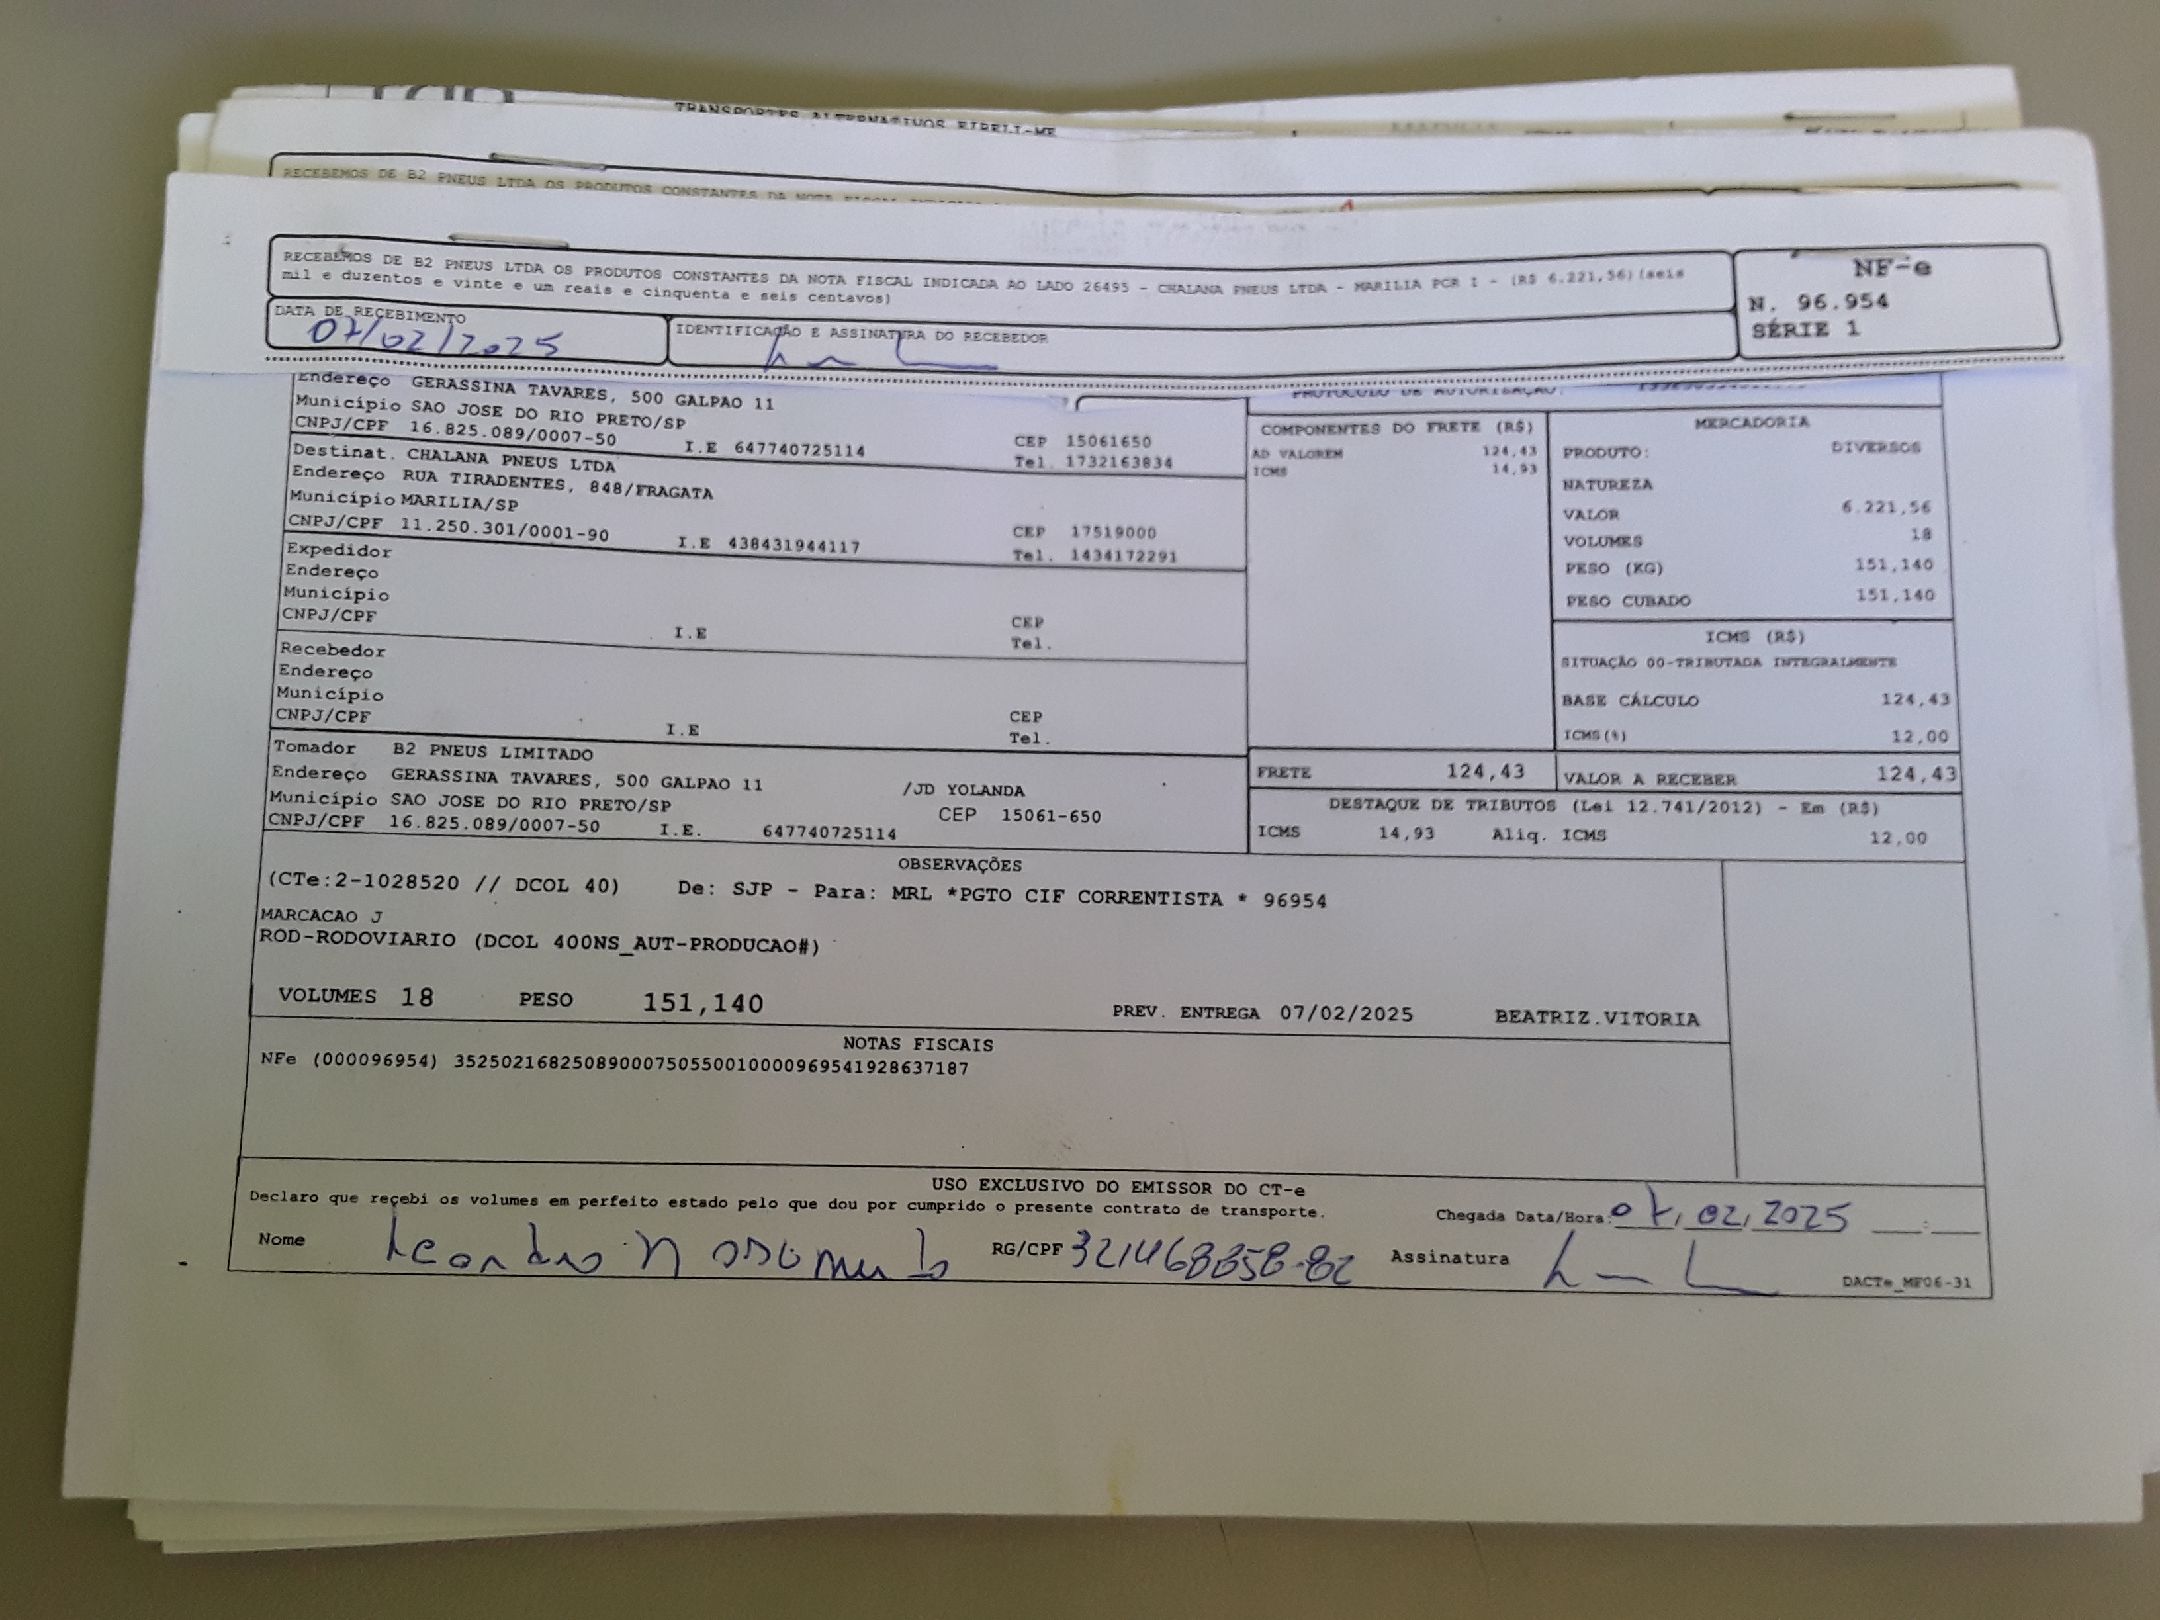 TRANSPORTES ALTERNATIVOS EIRELI-ME
RECEBEMOS DE B2 PNEUS LTDA OS PRODUTOS CONSTANTES DA NOTA FISCAL
RECEBEMOS DE B2 PNEUS LTDA OS PRODUTOS CONSTANTES DA NOTA FISCAL INDICADA AO LADO 26495 - CHALANA PNEUS LTDA - MARILIA PCR I - (R$ 6.221,56)(seis
mil e duzentos e vinte e um reais e cinquenta e seis centavos)
NF-e
N. 96.954
SÉRIE 1
DATA DE RECEBIMENTO
07/02/2025
IDENTIFICAÇÃO E ASSINATURA DO RECEBEDOR
PROTOCOLO DE AUTORIZAÇÃO:
Endereço GERASSINA TAVARES, 500 GALPAO 11
Município SAO JOSE DO RIO PRETO/SP
CNPJ/CPF 16.825.089/0007-50 I.E 647740725114
CEP 15061650
Tel. 1732163834
Destinat. CHALANA PNEUS LTDA
Endereço RUA TIRADENTES, 848/FRAGATA
Município MARILIA/SP
CNPJ/CPF 11.250.301/0001-90 I.E 438431944117
CEP 17519000
Tel. 1434172291
Expedidor
Endereço
Município
CNPJ/CPF I.E
CEP
Tel.
Recebedor
Endereço
Município
CNPJ/CPF I.E
CEP
Tel.
Tomador B2 PNEUS LIMITADO
Endereço GERASSINA TAVARES, 500 GALPAO 11 /JD YOLANDA
Município SAO JOSE DO RIO PRETO/SP CEP 15061-650
CNPJ/CPF 16.825.089/0007-50 I.E. 647740725114
COMPONENTES DO FRETE (R$)
AD VALOREM 124,43
ICMS 14,93
MERCADORIA
PRODUTO: DIVERSOS
NATUREZA
VALOR 6.221,56
VOLUMES 18
PESO (KG) 151,140
PESO CUBADO 151,140
ICMS (R$)
SITUAÇÃO 00-TRIBUTADA INTEGRALMENTE
BASE CÁLCULO 124,43
ICMS(%) 12,00
FRETE 124,43
VALOR A RECEBER 124,43
DESTAQUE DE TRIBUTOS (Lei 12.741/2012) - Em (R$)
ICMS 14,93 Aliq. ICMS 12,00
OBSERVAÇÕES
(CTe:2-1028520 // DCOL 40) De: SJP - Para: MRL *PGTO CIF CORRENTISTA * 96954
MARCACAO J
ROD-RODOVIARIO (DCOL 400NS_AUT-PRODUCAO#)
VOLUMES 18 PESO 151,140 PREV. ENTREGA 07/02/2025 BEATRIZ.VITORIA
NOTAS FISCAIS
NFe (000096954) 35250216825089000750550010000969541928637187
USO EXCLUSIVO DO EMISSOR DO CT-e
Declaro que recebi os volumes em perfeito estado pelo que dou por cumprido o presente contrato de transporte.
Chegada Data/Hora: 07/02/2025 ___:___
Nome Leandro RG/CPF 321468858-82 Assinatura
DACTe_MF06-31